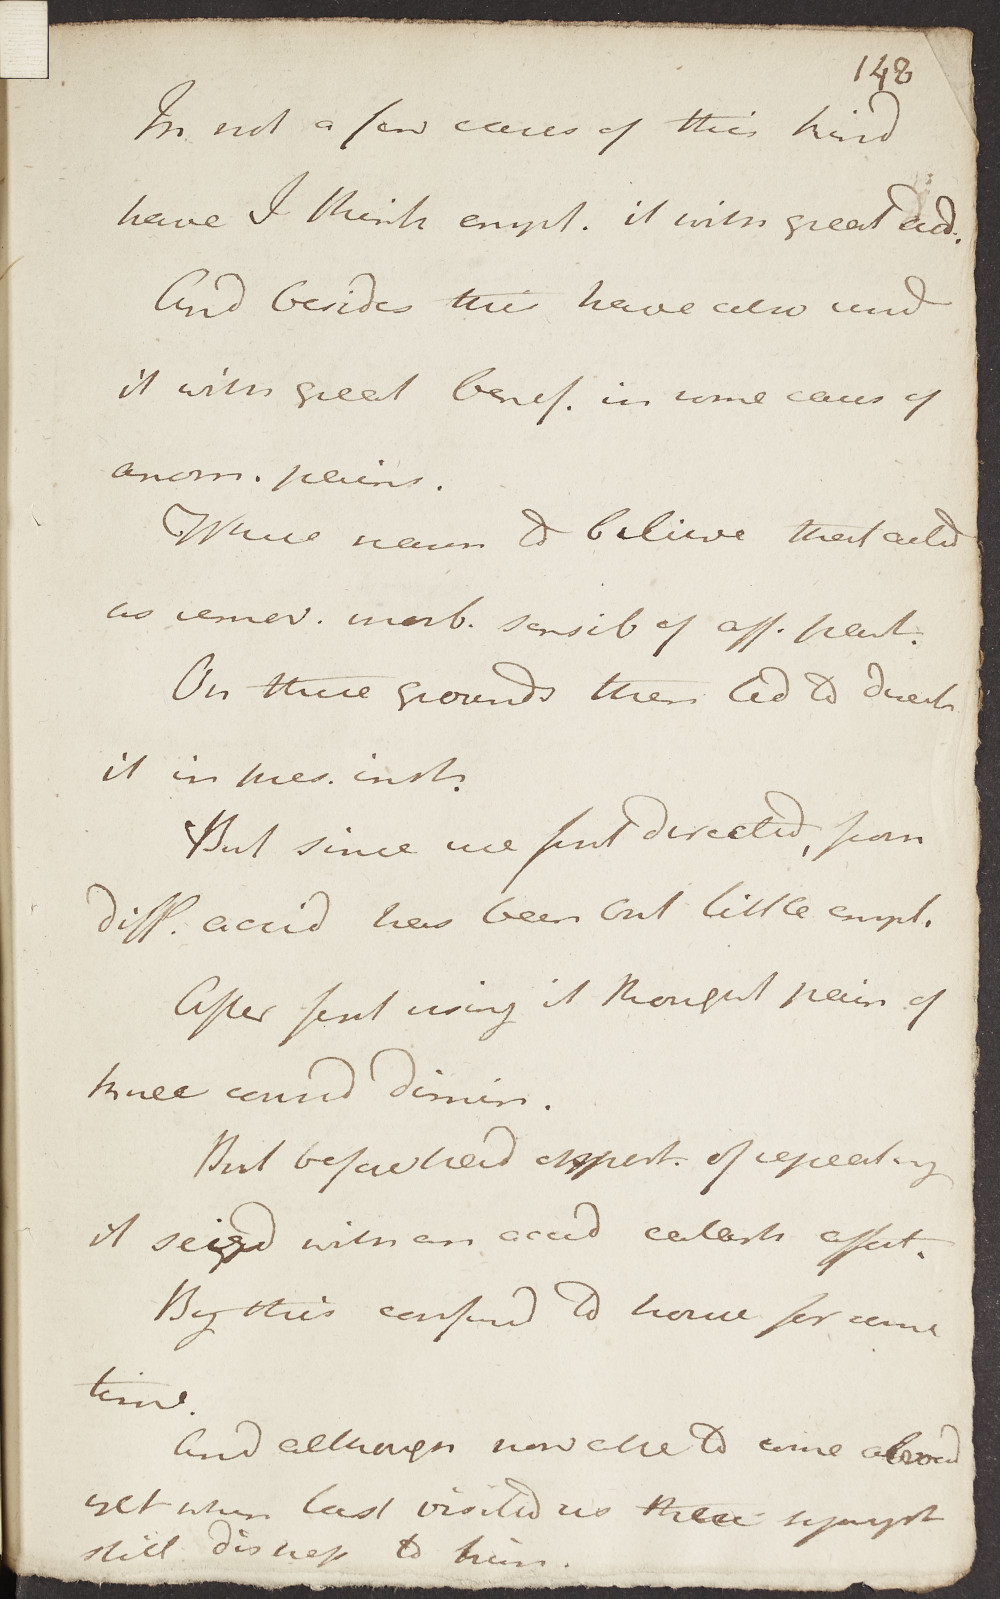 148
In not a few cases of this kind
have I think empl. it with great ad.
And besides this have also used
it with great benef. in some cases of
anom. pains.
Where reason to believe that acted
as remov. morb. sensib of aff. part.
On these grounds then led to direct
it in pres. inst.
But since use first directed, from
diff. accid has been but little empl.
After first using it thought pain of
knee consid dimin.
But before had opport. of repeating
it seized with an acid catarrh affect.
By this confined to house for some
time.
And although now able to come abroad
yet when last visited us these sympt
still distress to him.